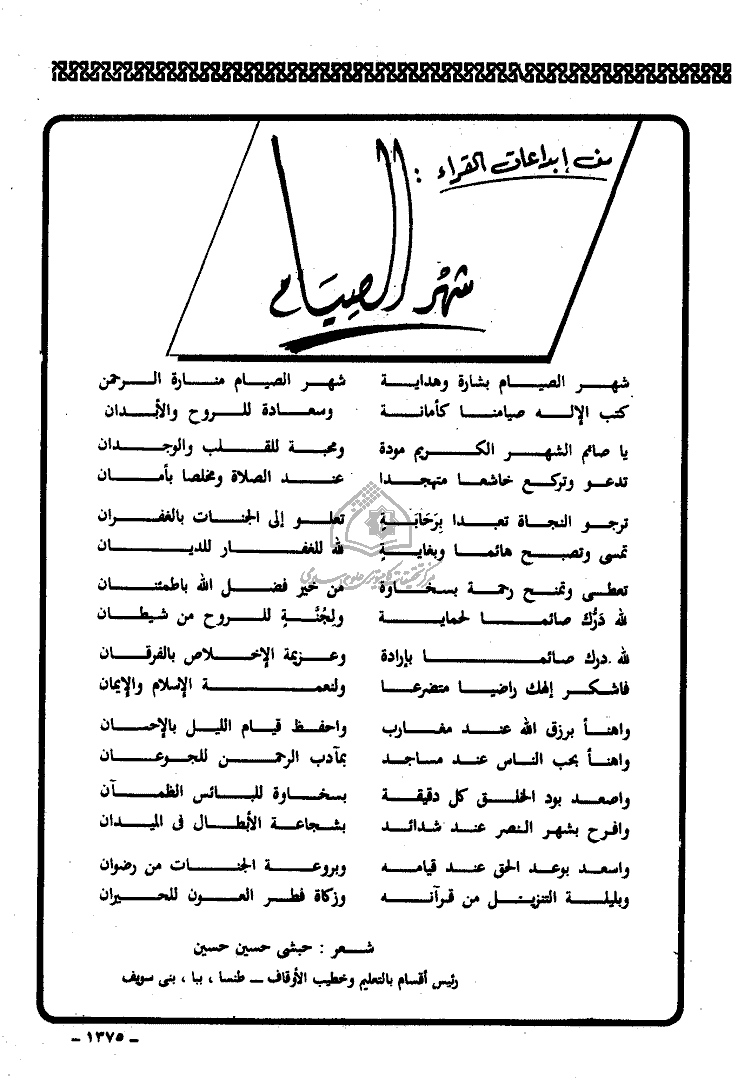 من إبداعات القراء :
شهر الصيام
شهر الصيام بشارة وهداية شهر الصيام منارة الرحمن
كتب الإله صيامنا كأمانة وسعادة للروح والأبدان
يا صائم الشهر الكريم مودة ومحبة للقلب والوجدان
تدعو وتركع خاشعا متهجدا عند الصلاة ومخلصا بأمان
ترجو النجاة تعبدا بِرَحَابَةٍ تعلو إلى الجنات بالغفران
تمسى وتصبح هائما وبغاية لله للغفار للديان
تعطى وتمنح رحمة بسخاوة من خير فضل الله باطمئنان
لله دَرُّك صائما لحماية ولِجُنَّةٍ للروح من شيطان
لله درك صائما بإرادة وعزيمة الإخلاص بالفرقان
فاشكر إلهك راضيا متضرعا ولنعمة الإسلام والإيمان
واهنأ برزق الله عند مغارب واحفظ قيام الليل بالإحسان
واهنأ بحب الناس عند مساجد بمآدب الرحمن للجوعان
واصعد بود الخلق كل دقيقة بسخاوة للبائس الظمآن
وافرح بشهر النصر عند شدائد بشجاعة الأبطال فى الميدان
واسعد بوعد الحق عند قيامه وبروعة الجنات من رضوان
وبليلة التنزيل من قرآنه وزكاة فطر العون للحيران
شعر : حبشى حسين حسين
رئيس أقسام بالتعليم وخطيب الأوقاف ــ طنسا ، ببا ، بنى سويف
ــ ١٣٧٥ ــ